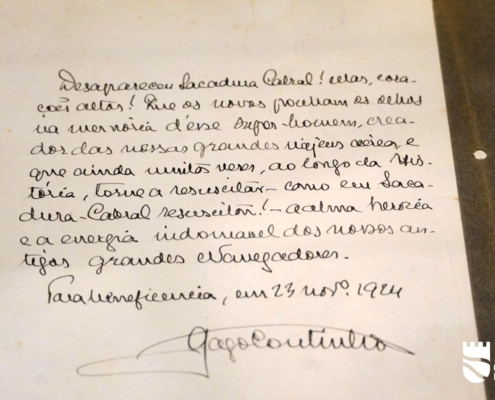 Desapareceu Sacadura Cabral! Mas, cora-
ções altos! Que os novos ponham os olhos
na memória d'ésse super-homem, crea-
dor das nossas grandes viajens aéreas, e
que ainda muitas vezes, ao longo da His-
tória, torne a resuscitar - como em Saca-
dura-Cabral resuscitou! - a alma heroica
e a energia indomavel dos nossos an-
tigos grandes Navegadores.
Para beneficencia, em 23 novº. 1924
Gago Coutinho